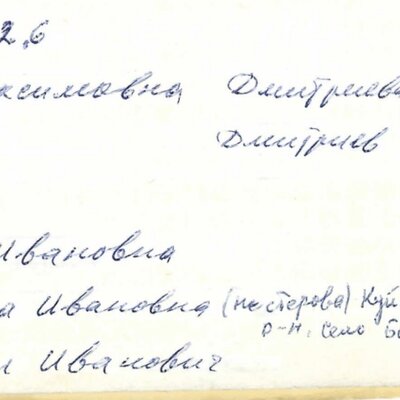 2.6
ксимовна Дмитриева
Дмитриев
Ивановна
а Ивановна (нестерова) Куй
р-н. село Б
л Иванович